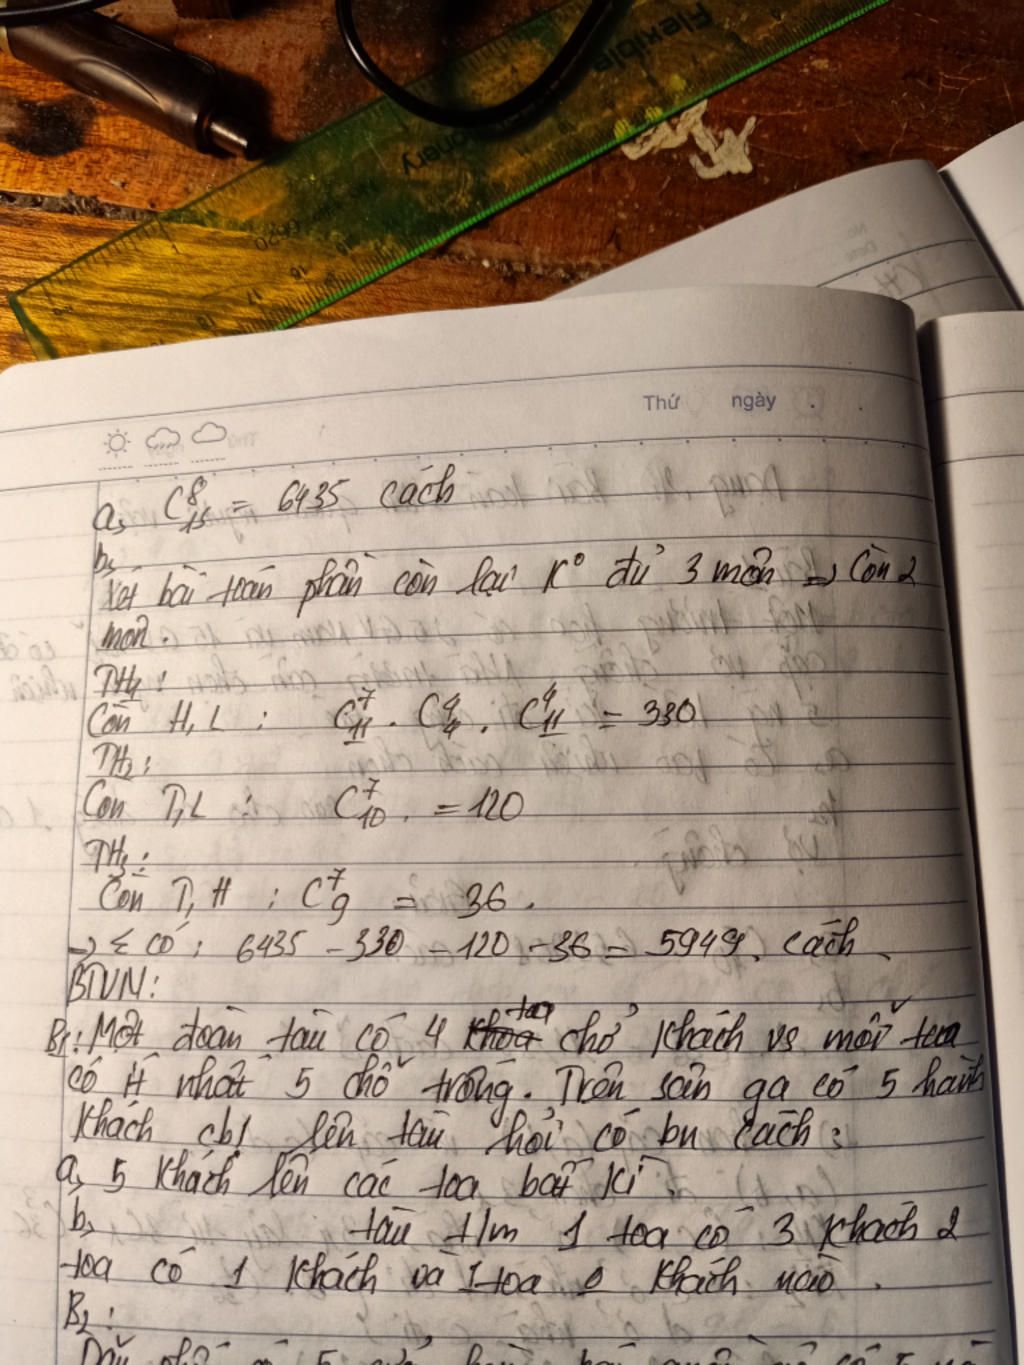 Flexible
Thứ ngày
a, C⁸₁₅ = 6435 cách
b,
Xét bài toán phần còn lại K° đủ 3 môn => Còn 2
môn.
TH₁:
Còn H, L : C⁷₁₁ . C⁴₄ . C⁴₁₁ = 330
TH₂:
Còn T, L : C⁷₁₀ . = 120
TH₃:
Còn T, H : C⁷₉ = 36 .
=> Σ có : 6435 - 330 - 120 - 36 = 5949. Cách
BTVN:
B₁: Một đoàn tàu có 4 toa chở khách vs mỗi toa
có ít nhất 5 chỗ trống. Trên sân ga có 5 hành
khách cb! lên tàu hỏi có bn cách :
a, 5 khách lên các toa bất kì .
b, tàu t/m 1 toa có 3 khách 2
toa có 1 khách và 1 toa 0 khách nào .
B₂ :